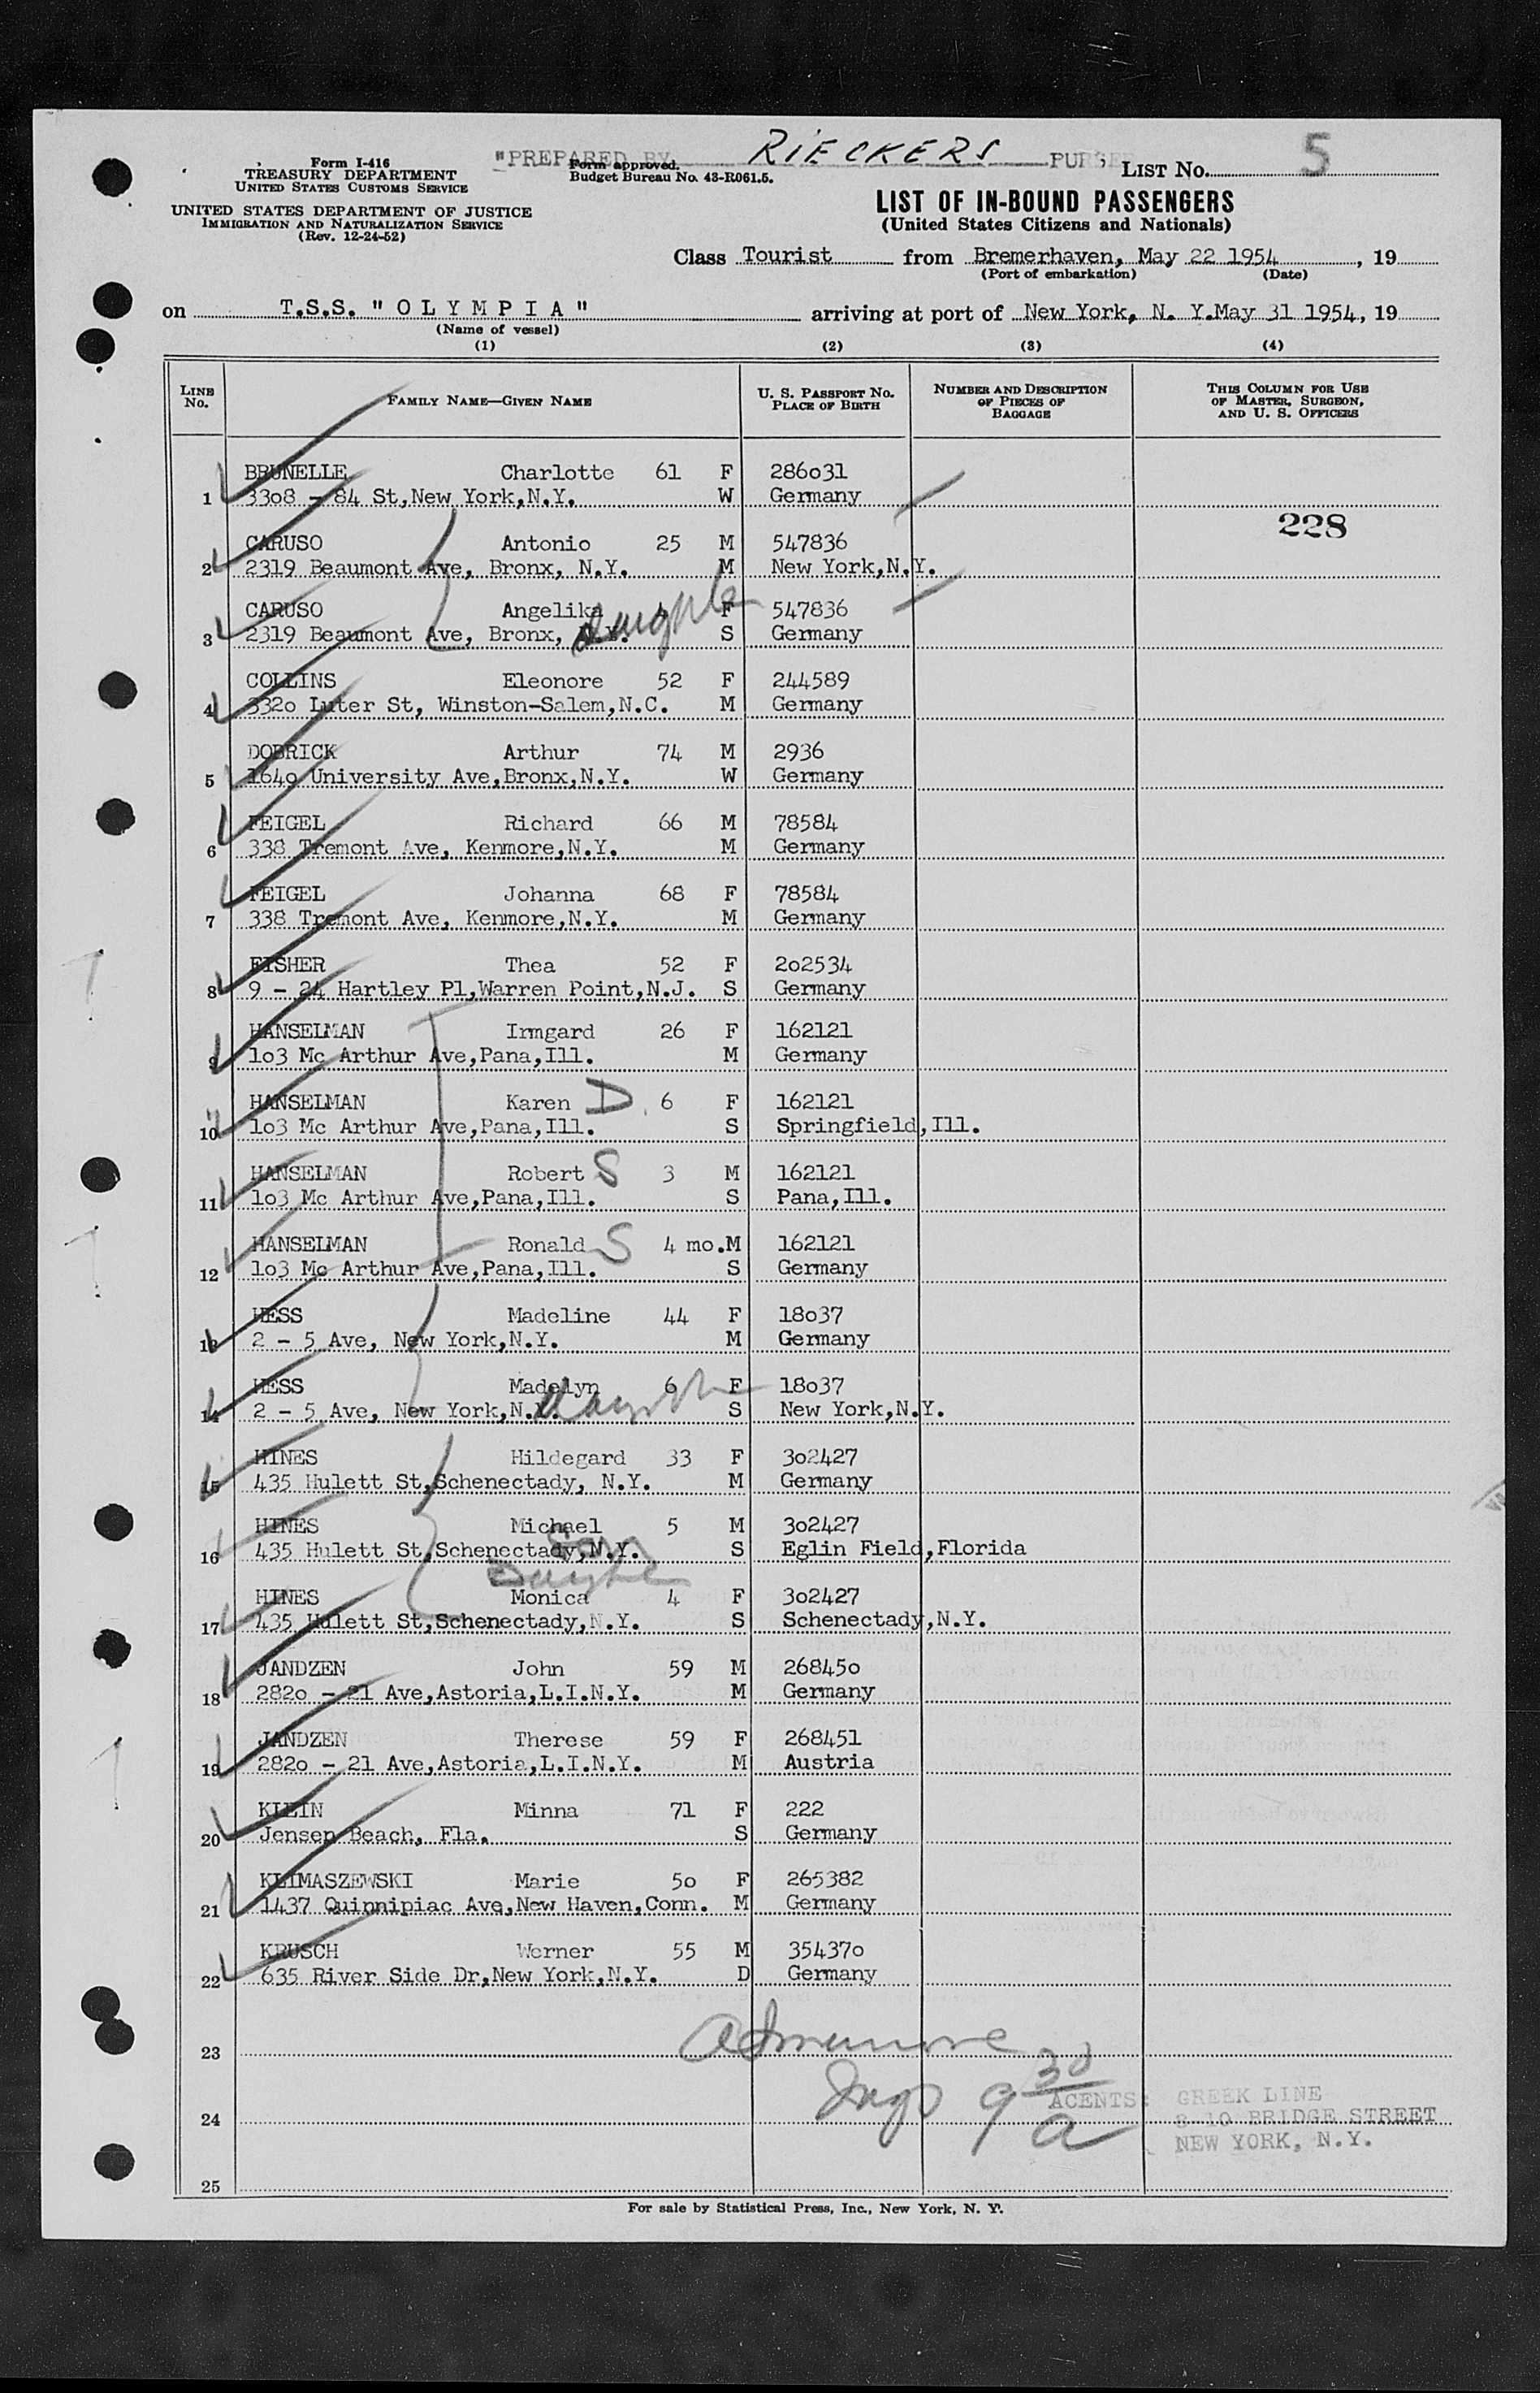 Form I-416
TREASURY DEPARTMENT
UNITED STATES CUSTOMS SERVICE
UNITED STATES DEPARTMENT OF JUSTICE
IMMIGRATION AND NATURALIZATION SERVICE
(Rev. 12-24-52)
"PREPARED BY RIECKERS PURSER
Form approved.
Budget Bureau No. 43-R061.5.
LIST No. 5
LIST OF IN-BOUND PASSENGERS
(United States Citizens and Nationals)
Class Tourist from Bremerhaven, May 22 1954, 19
(Port of embarkation) (Date)
on T.S.S. "OLYMPIA" arriving at port of New York, N. Y. May 31 1954, 19
(Name of vessel)
(1) (2) (3) (4)
LINE No. FAMILY NAME—GIVEN NAME U. S. PASSPORT NO. PLACE OF BIRTH NUMBER AND DESCRIPTION OF PIECES OF BAGGAGE THIS COLUMN FOR USE OF MASTER, SURGEON, AND U. S. OFFICERS
BRUNELLE Charlotte 61 F 286o31
1 33o8 - 84 St,New York,N.Y. W Germany
228
CARUSO Antonio 25 M 547836
2 2319 Beaumont Ave, Bronx, N.Y. M New York,N.Y.
CARUSO Angelika F 547836
daughter
3 2319 Beaumont Ave, Bronx, N.Y. S Germany
COLLINS Eleonore 52 F 244589
4 332o Luter St, Winston-Salem,N.C. M Germany
DOBRICK Arthur 74 M 2936
5 164o University Ave,Bronx,N.Y. W Germany
FEIGEL Richard 66 M 78584
6 338 Tremont Ave, Kenmore,N.Y. M Germany
FEIGEL Johanna 68 F 78584
7 338 Tremont Ave, Kenmore,N.Y. M Germany
FISHER Thea 52 F 2o2534
8 9 - 24 Hartley Pl,Warren Point,N.J. S Germany
HANSELMAN Irmgard 26 F 162121
9 1o3 Mc Arthur Ave,Pana,Ill. M Germany
HANSELMAN Karen D 6 F 162121
10 1o3 Mc Arthur Ave,Pana,Ill. S Springfield,Ill.
HANSELMAN Robert S 3 M 162121
11 1o3 Mc Arthur Ave,Pana,Ill. S Pana,Ill.
HANSELMAN Ronald S 4 mo.M 162121
12 1o3 Mc Arthur Ave,Pana,Ill. S Germany
HESS Madeline 44 F 18o37
13 2 - 5 Ave, New York,N.Y. M Germany
HESS Madelyn 6 F 18o37
daughter
14 2 - 5 Ave, New York,N.Y. S New York,N.Y.
HINES Hildegard 33 F 3o2427
15 435 Hulett St,Schenectady, N.Y. M Germany
HINES Michael 5 M 3o2427
Son
16 435 Hulett St,Schenectady,N.Y. S Eglin Field,Florida
Daughter
HINES Monica 4 F 3o2427
17 435 Hulett St,Schenectady,N.Y. S Schenectady,N.Y.
JANDZEN John 59 M 26845o
18 282o - 21 Ave,Astoria,L.I.N.Y. M Germany
JANDZEN Therese 59 F 268451
19 282o - 21 Ave,Astoria,L.I.N.Y. M Austria
KLEIN Minna 71 F 222
20 Jensen Beach, Fla. S Germany
KLIMASZEWSKI Marie 5o F 265382
21 1437 Quinnipiac Ave,New Haven,Conn. M Germany
KRUSCH Werner 55 M 35437o
22 635 River Side Dr,New York,N.Y. D Germany
23
24 9 30 a
AGENTS: GREEK LINE
8-10 BRIDGE STREET
NEW YORK, N.Y.
25
For sale by Statistical Press, Inc., New York, N. Y.